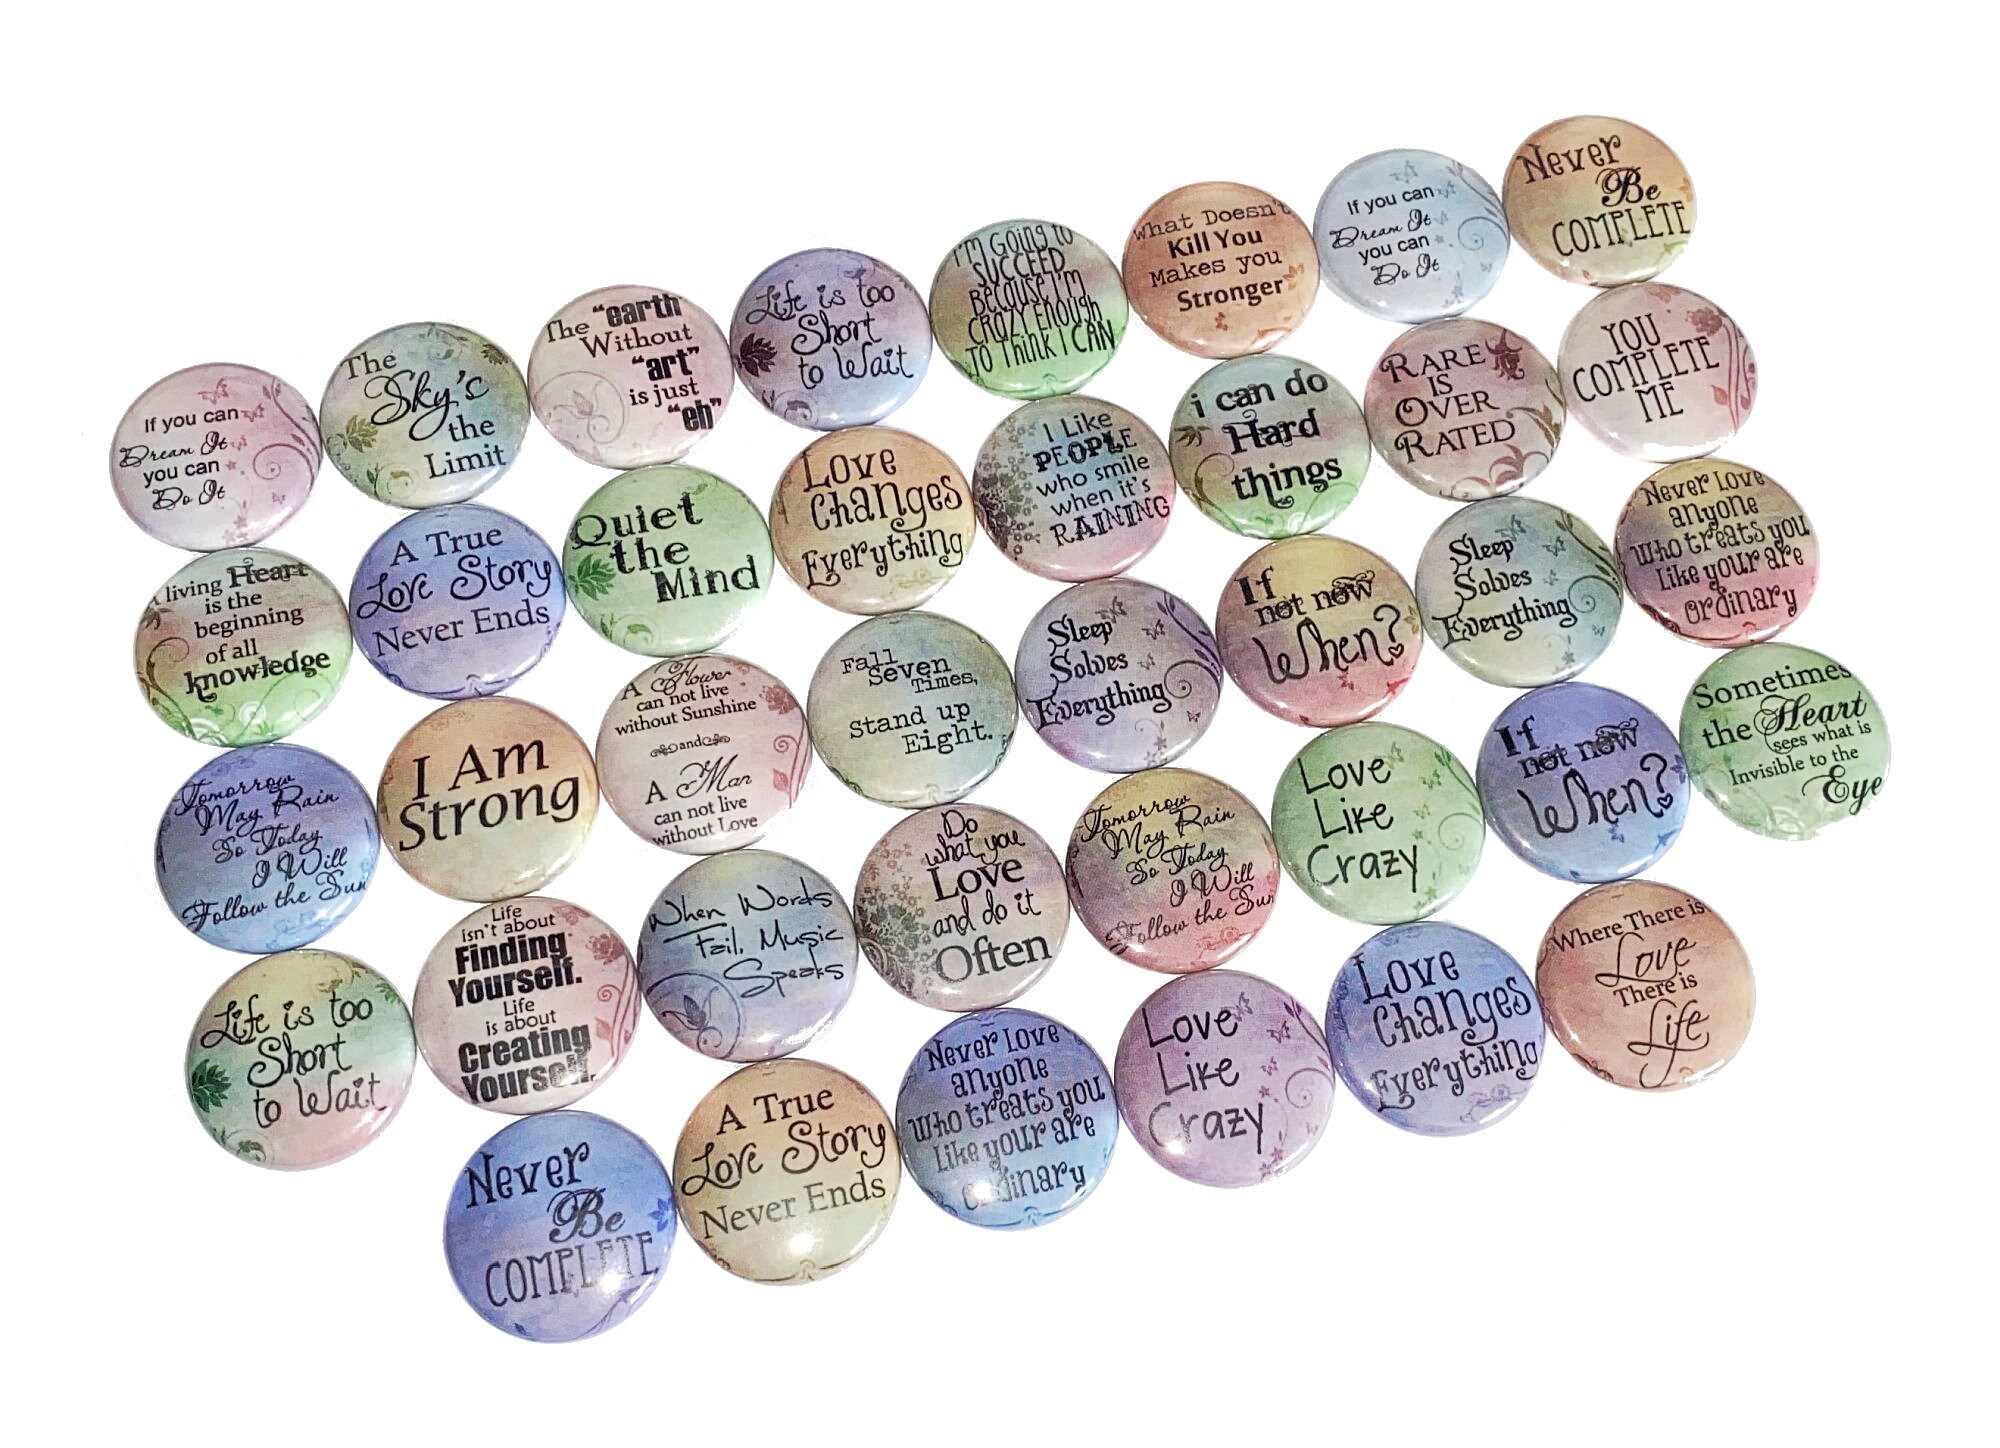 If you can
Dream It
you can
Do It
The
Sky's
the
Limit
The "earth"
Without
"art"
is just
"eh"
Life is too
Short
to Wait
I'm Going to
SUCCEED
Because I'm
CRAZY Enough
TO Think I CAN
What Doesn't
Kill You
Makes you
Stronger
If you can
Dream It
you can
Do It
Never
Be
COMPLETE
A living Heart
is the
beginning
of all
knowledge
A True
Love Story
Never Ends
Quiet
the
Mind
Love
Changes
Everything
I Like
PEOPLE
who smile
when it's
RAINING
i can do
Hard
things
RARE
IS
OVER
RATED
YOU
COMPLETE
ME
Tomorrow
May Rain
So Today
I Will
Follow the Sun
I Am
Strong
A Flower
can not live
without Sunshine
and
A Man
can not live
without Love
Fall
Seven
Times,
Stand up
Eight.
Sleep
Solves
Everything
If
not now
When?
Sleep
Solves
Everything
Never Love
anyone
Who treats you
Like your are
ordinary
Life is too
Short
to Wait
Life
isn't about
Finding
Yourself.
Life
is about
Creating
Yourself.
When Words
Fail, Music
Speaks
Do
what you
Love
and do it
Often
Tomorrow
May Rain
So Today
I Will
Follow the Sun
Love
Like
Crazy
If
not now
When?
Sometimes
the Heart
sees what is
Invisible to the
Eye
Never
Be
COMPLETE
A True
Love Story
Never Ends
Never Love
anyone
Who treats you
Like your are
ordinary
Love
Like
Crazy
Love
Changes
Everything
Where There is
Love
There is
Life